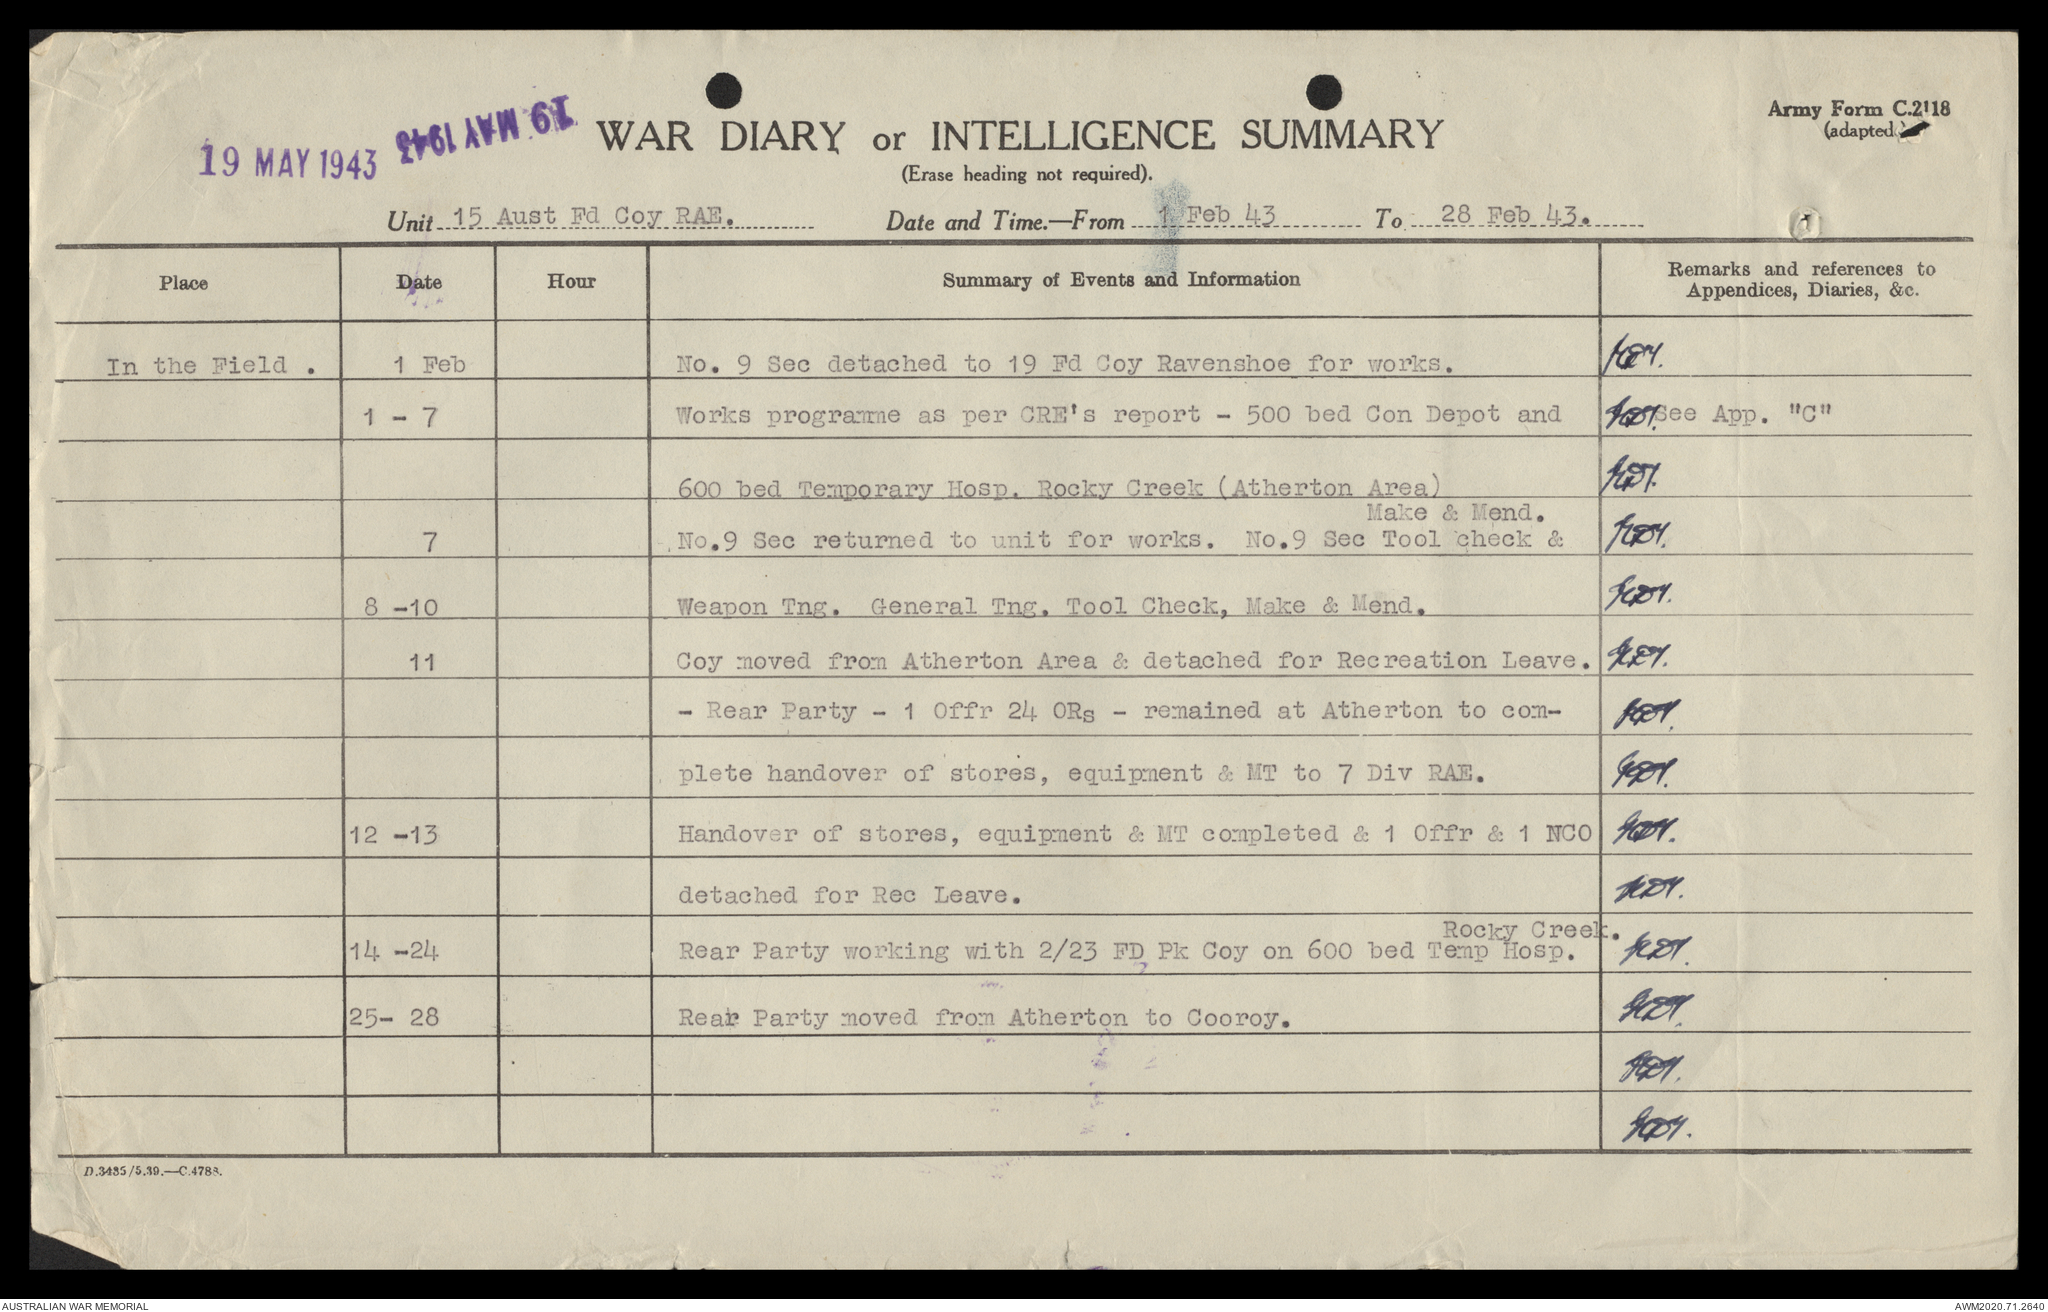 Army Form C.2118
(adapted)
19 MAY 1943
19 MAY 1943
WAR DIARY or INTELLIGENCE SUMMARY
(Erase heading not required).
Unit 15 Aust Fd Coy RAE. Date and Time.—From 1 Feb 43 To 28 Feb 43.
1
Place Date Hour Summary of Events and Information Remarks and references to
Appendices, Diaries, &c.
In the Field . 1 Feb No. 9 Sec detached to 19 Fd Coy Ravenshoe for works.
1 - 7 Works programme as per CRE's report - 500 bed Con Depot and See App. "C"
600 bed Temporary Hosp. Rocky Creek (Atherton Area)
Make & Mend.
7 No.9 Sec returned to unit for works. No.9 Sec Tool check &
8 -10 Weapon Tng. General Tng. Tool Check, Make & Mend.
11 Coy moved from Atherton Area & detached for Recreation Leave.
- Rear Party - 1 Offr 24 ORs - remained at Atherton to com-
plete handover of stores, equipment & MT to 7 Div RAE.
12 -13 Handover of stores, equipment & MT completed & 1 Offr & 1 NCO
detached for Rec Leave.
Rocky Creek.
14 -24 Rear Party working with 2/23 FD Pk Coy on 600 bed Temp Hosp.
25- 28 Rear Party moved from Atherton to Cooroy.
D.3435/5.39.—C.4788.
AUSTRALIAN WAR MEMORIAL AWM2020.71.2640